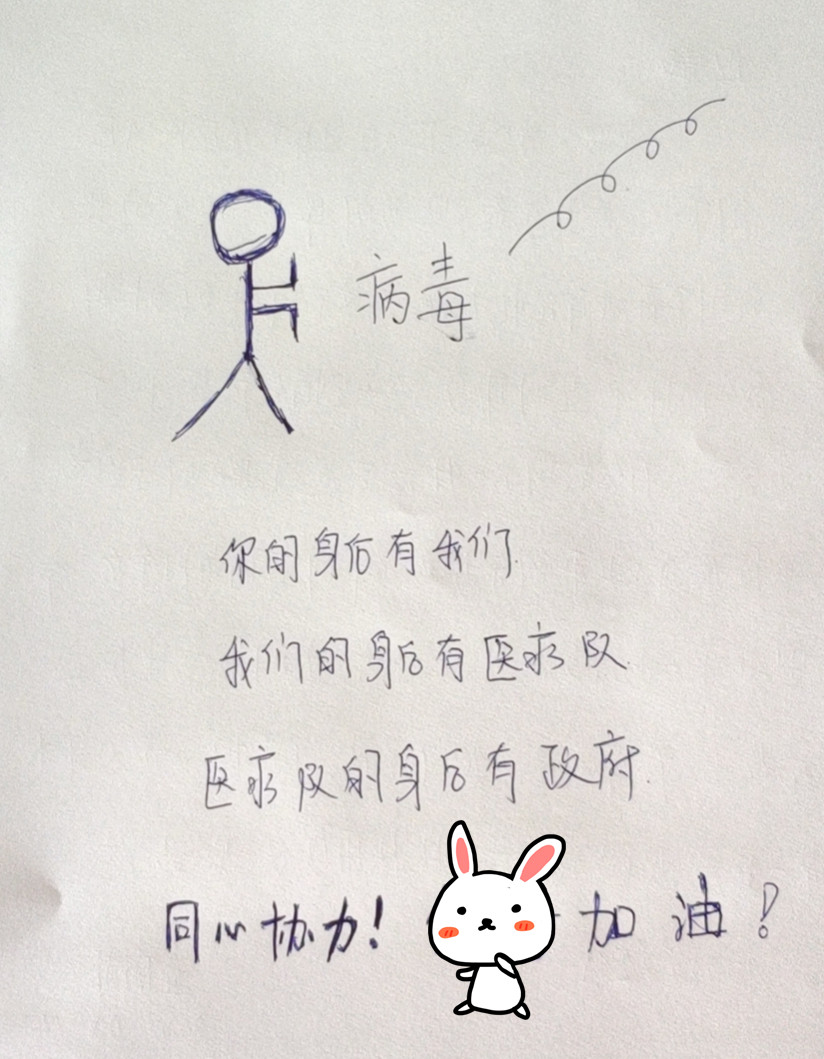 病毒
你的身后有我们.
我们的身后有医疗队.
医疗队的身后有政府.
同心协力! 加油!